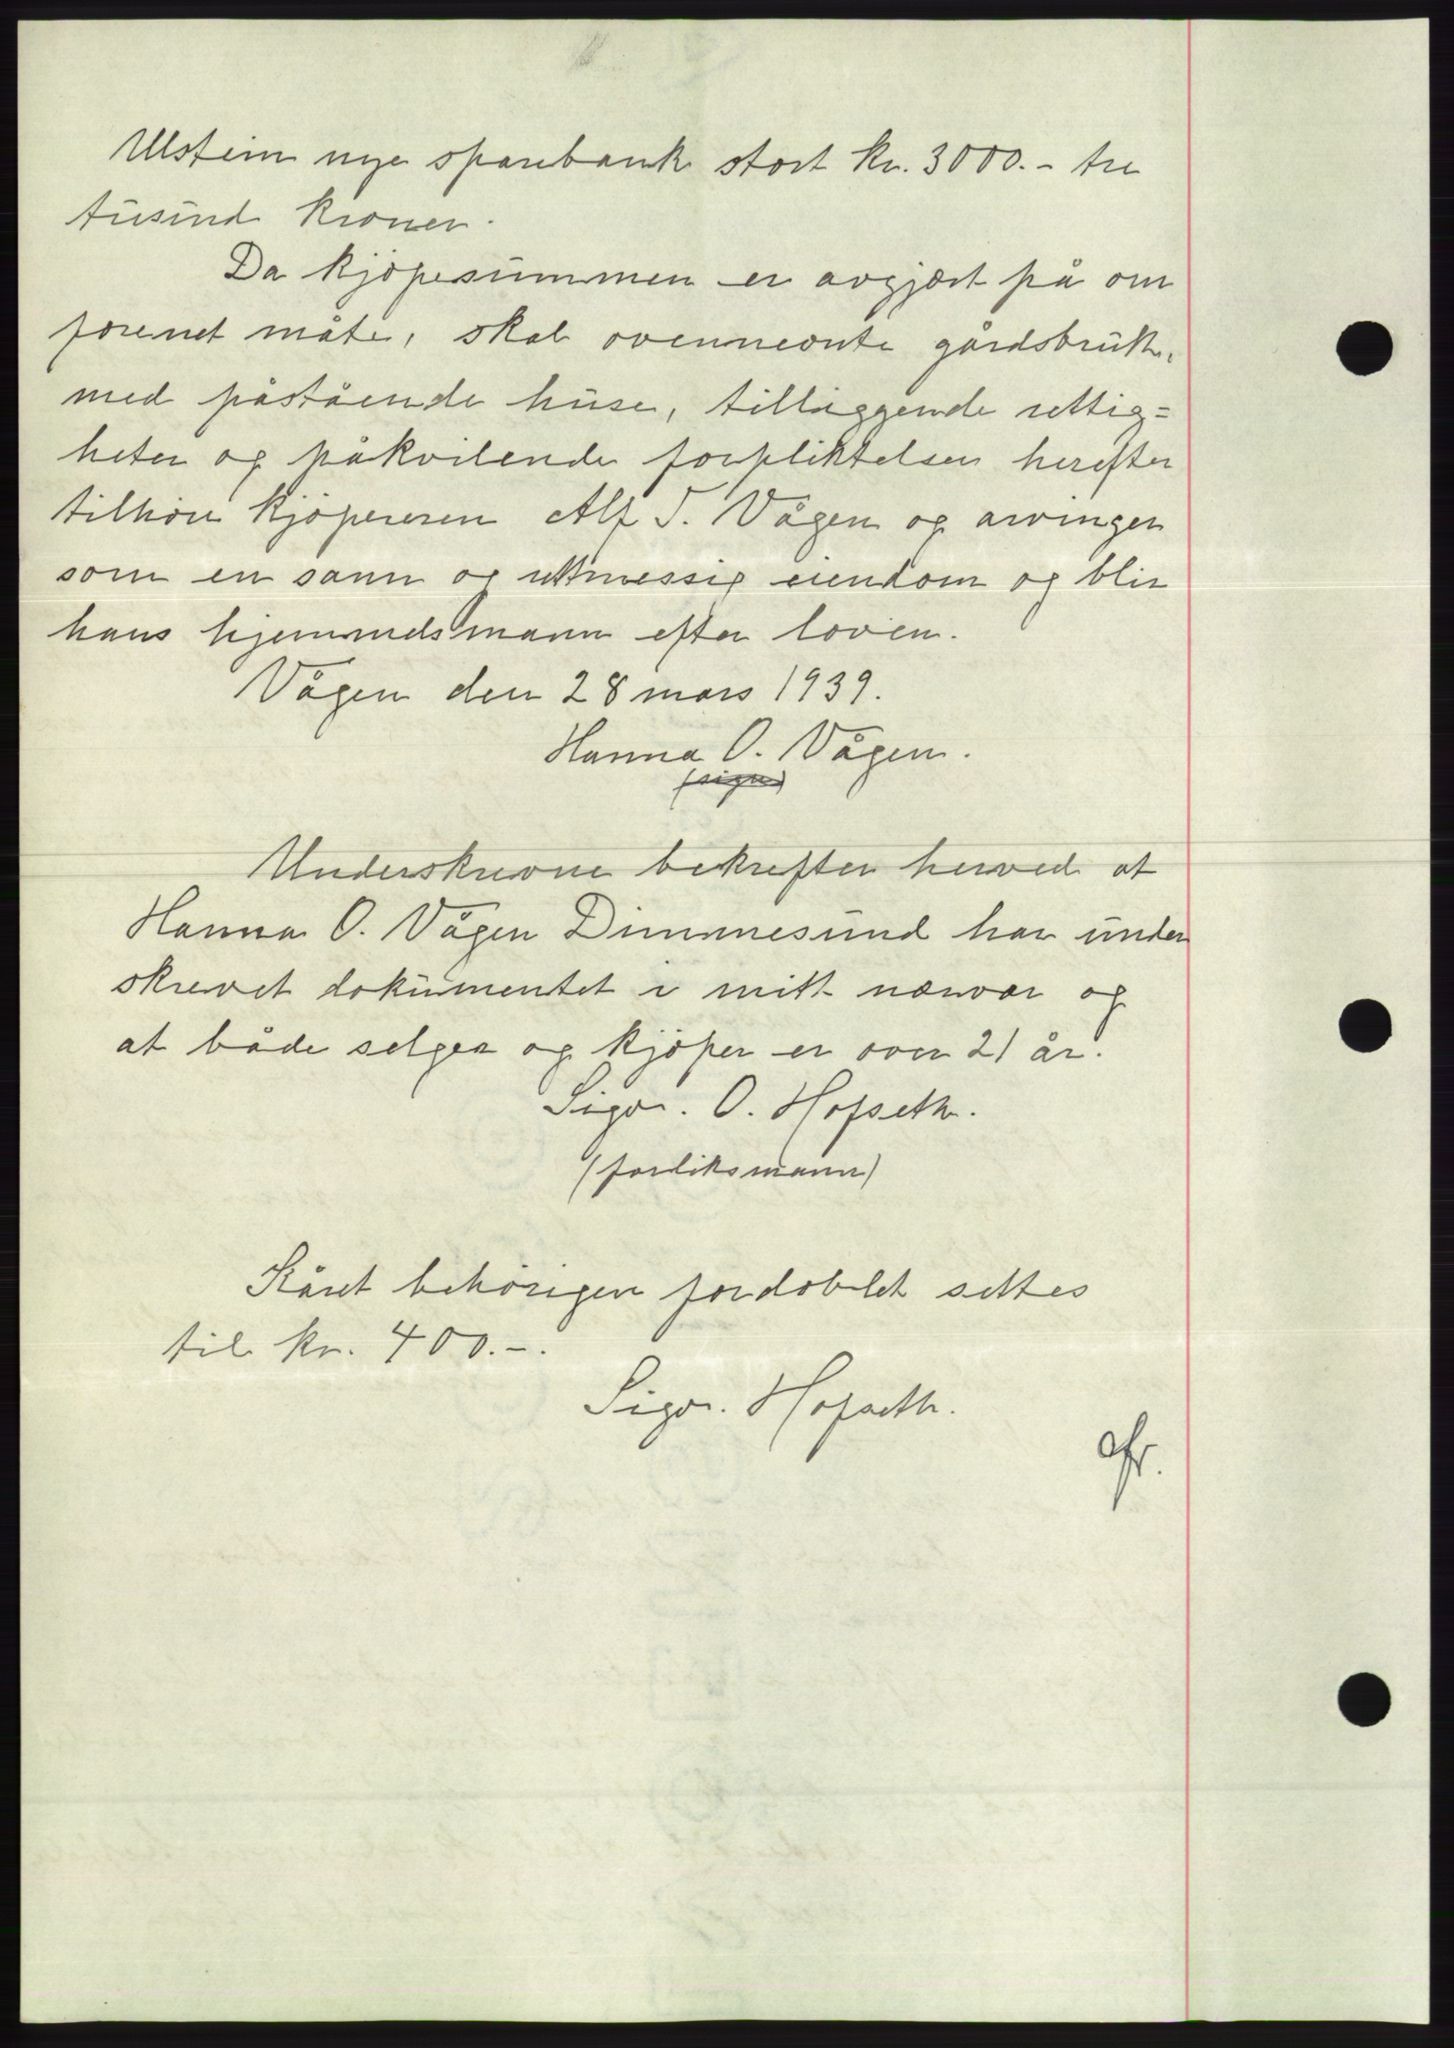 Ulstein nye sparebank stort kr. 3000.- tre
tusind kroner.
Da kjöpesummen er avgjort på om
forenet måte, skal ovennevnte gårdsbruk,
med påstående huse, tilliggende rettig=
heter og påkvilende forpliktelser herefter
tilhöre kjöpereren Alf T. Vågen og arvinger
som en sann og rettmessig eiendom og blir
hans hjemmelsmann efter loven.
Vågen den 28 mars 1939.
Hanna O. Vågen.
(sign)
Underskrevne bekrefter herved at
Hanna O. Vågen Dimmesund har under
skrevet dokumentet i mitt nærvær og
at både selger og kjöper er over 21 år.
Sigv. O. Hofseth.
(forliksmann)
Kåret behörigen fordoblet settes
til kr. 400.-.
Sigv. Hofseth.